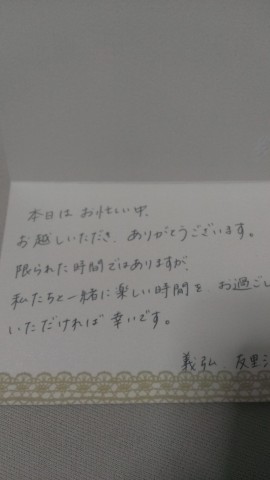 本日は お忙しい中、
お越しいただき、ありがとうございます。
限られた時間ではありますが、
私たちと一緒に楽しい時間を、お過ごし
いただければ 幸いです。
義弘 友里